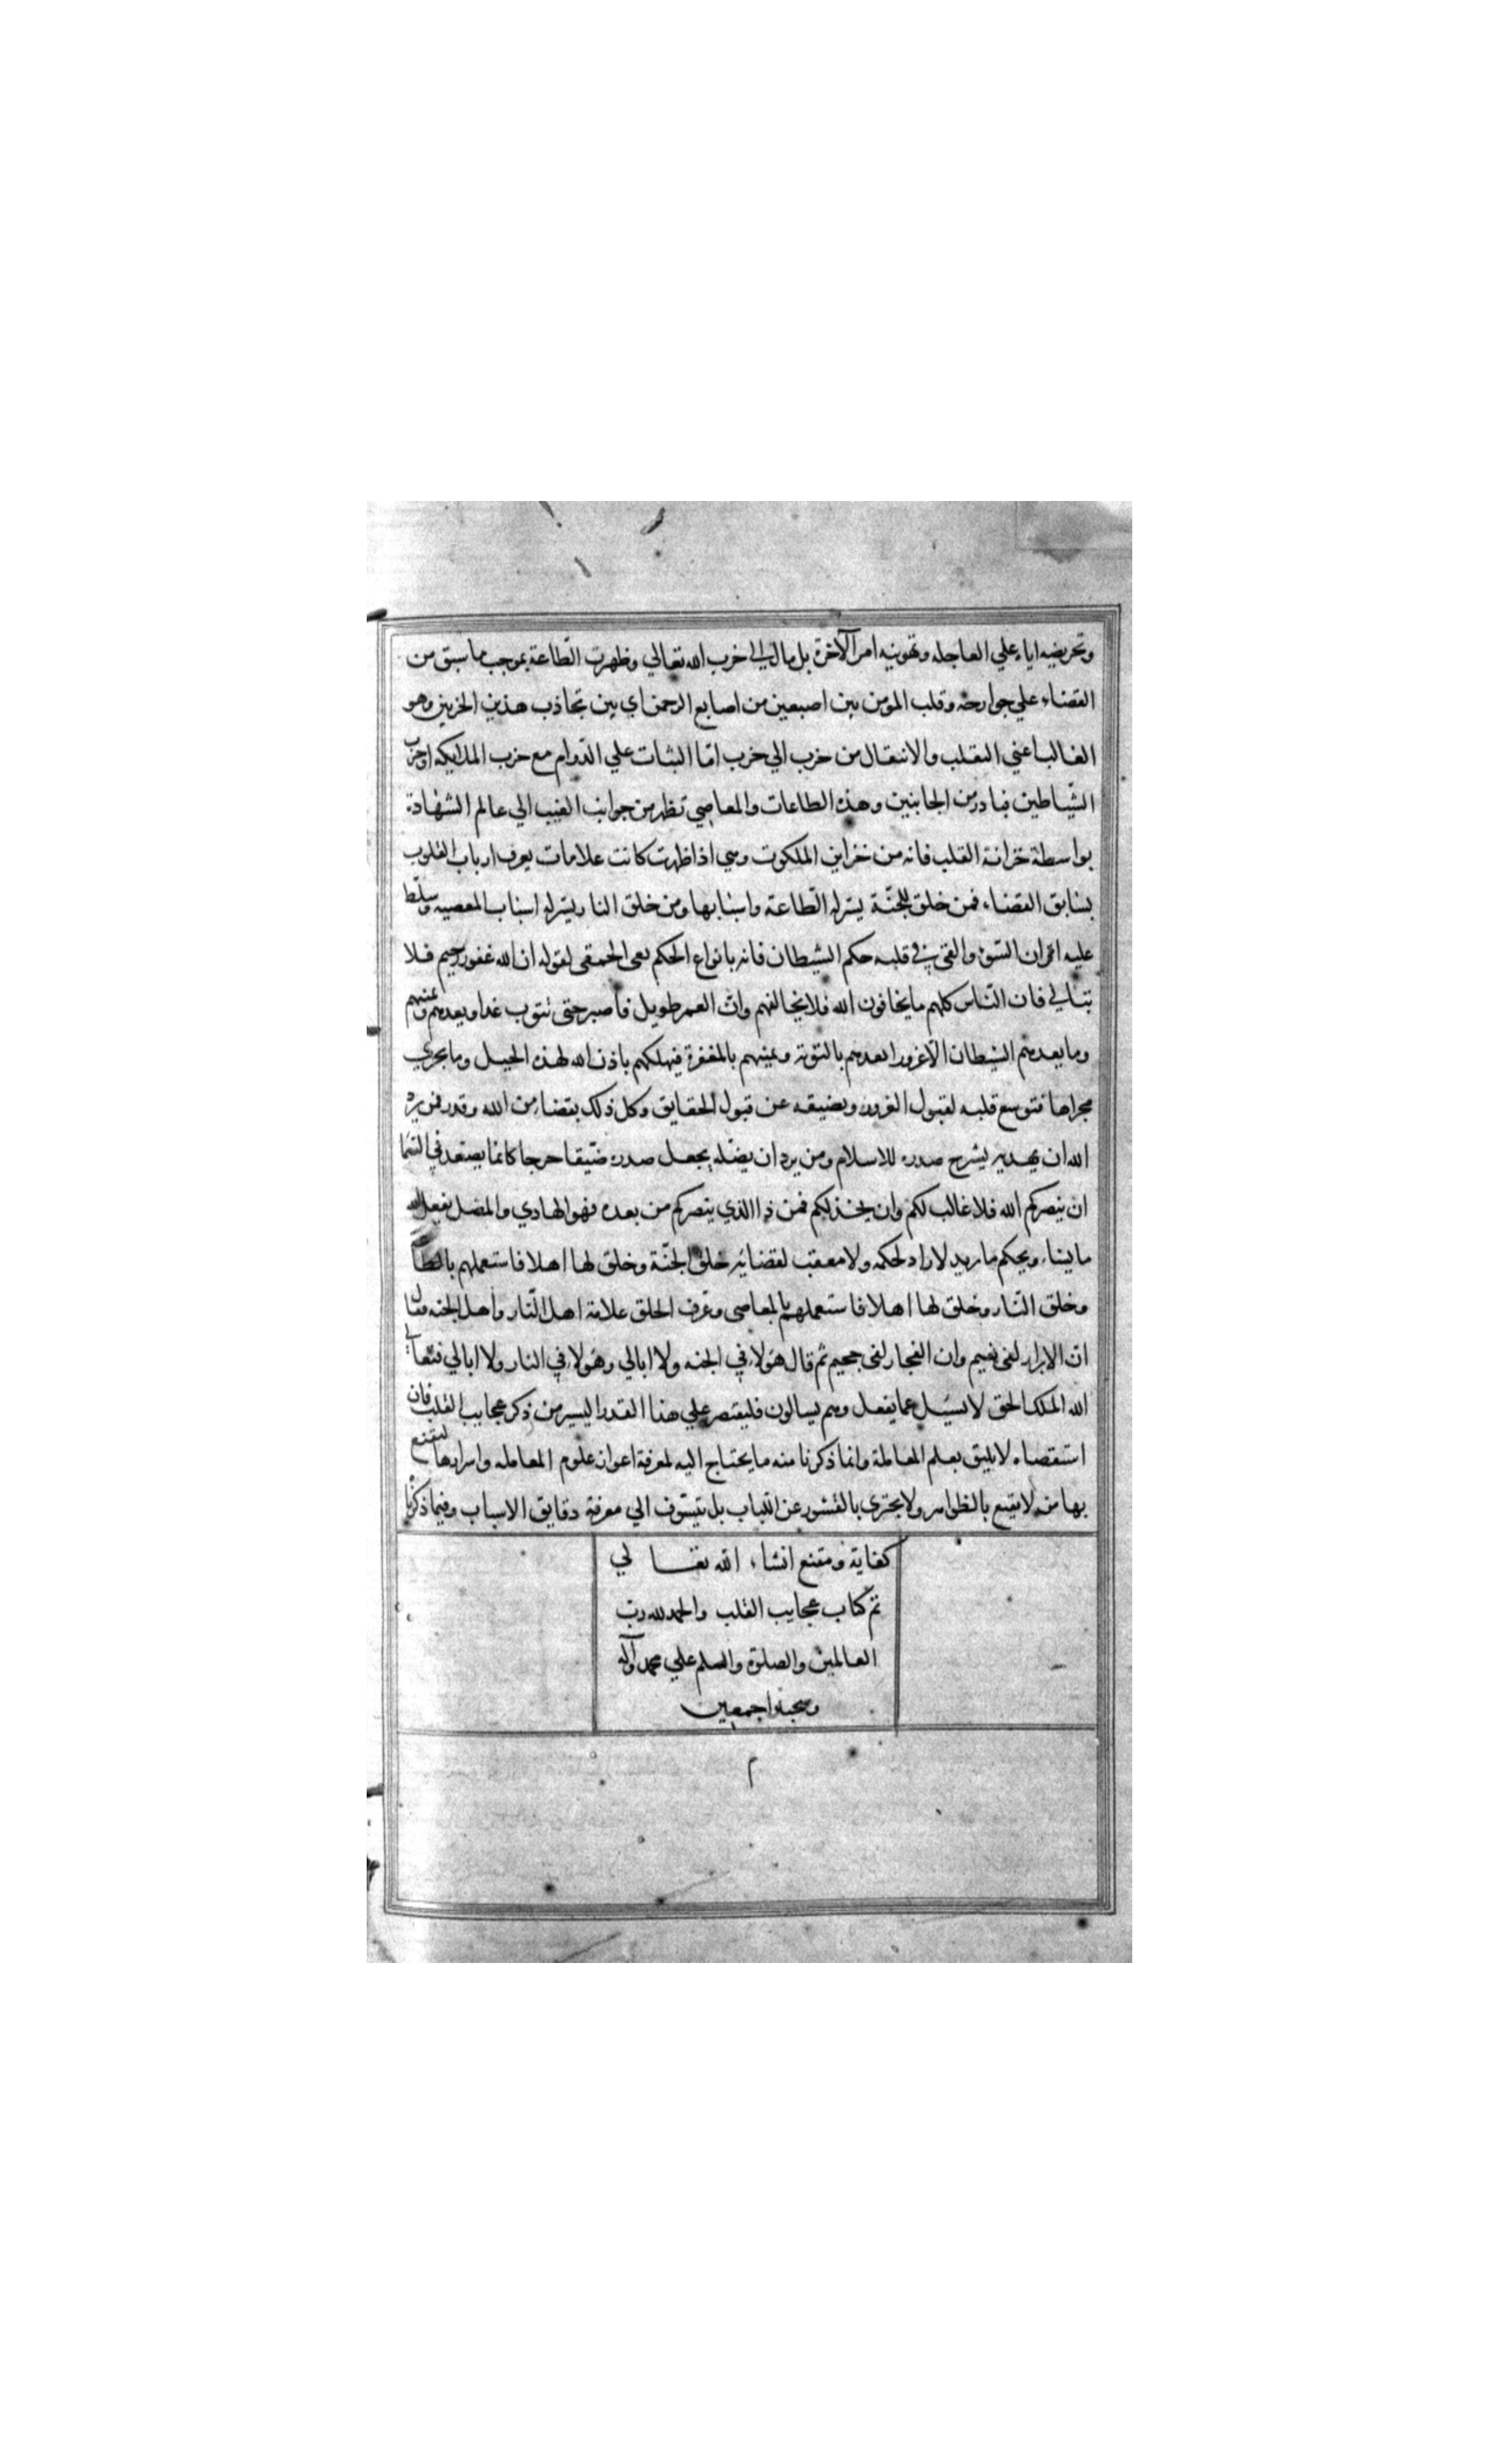 وتحريضه اياه علي العاجله وتهوينه امر الآخرة بل مال الي حزب الله تعالي وظهرت الطّاعة بموجب ما سبق من
القضاء علي جوارحه وقلب المؤمن بين اصبعين من اصابع الرحمن اي بين تجاذب هذين الحزبين وهو
الغالب اعني التقلب والانتقال من حزب الي حزب امّا الثبات علي الدّوام مع حزب الملايكه او حزب
الشّياطين فنادر من الجانبين وهذه الطاعات والمعاصي تظهر من جوانب الغيب الي عالم الشهادة
بواسطة خزانة القلب فانه من خزاين الملكوت وهي اذا ظهرت كانت علامات يعرف ارباب القلوب
بسابق القضاء فمن خلق للجنّة يسّر له الطّاعة واسبابها ومن خلق النار يسّر له اسباب المعصيه وسلّط
عليه اقران السّوء والقي في قلبه حكم الشيطان فانه بانواع الحكم يعي الحمقي لقوله ان الله غفور رحيم فلا
تبالي فان النّاس كلهم ما يخافون الله فلا يخالفهم وانّ العمر طويل فاصبر حتي تتوب غدا ويعدهم ويمنيهم
وما يعدهم الشيطان الّا غرورا يعدهم بالتوبة ويمنيهم بالمغفرة فيهلكهم باذن الله لهذه الحيل وما يجري
مجراها فتوسع قلبه لقبول الغرور ويضيقه عن قبول الحقايق وكل ذلك بقضاء من الله وقدر فمن يرد
الله ان يهديه يشرح صدره للاسلام ومن يرد ان يضلّه يجعل صدره ضيّقا حرجا كانما يصّعد في السّما
ان ينصركم الله فلا غالب لكم وان يخذلكم فمن ذا الذي ينصركم من بعده فهو الهادي والمضل يفعل الله
ما يشاء ويحكم ما يريد لا راد لحكمه ولا معقب لقضائه خلق الجنّة وخلق لها اهلا فاستعملهم بالطا
وخلق النّار وخلق لها اهلا فاستعملهم بالمعاصي وعرف الخلق علامة اهل النّار واهل الجنه فقال
انّ الابرار لفي نعيم وان الفجار لفي جحيم ثم قال هؤلاء في الجنه ولا ابالي وهؤلاء في النار ولا ابالي فتعالي
الله الملك الحق لا يسئل عما يفعل وهم يسالون فليقتصر علي هذا القدر اليسير من ذكر عجايب القلب فان
استقصاه لا يليق بعلم المعاملة وانما ذكرنا منه ما يحتاج اليه لمعرفة اعوان علوم المعامله واسرارها ليقنع
بها من لا يقنع بالظواهر ولا يجتري بالقشور عن اللباب بل يتشوف الي معرفة دقايق الاسباب وفيما ذكرنا
كفاية ومقنع انشاء الله تعالي
تم كتاب عجايب القلب والحمد لله رب
العالمين والصلوة والسلم علي محمد وآله
وصحبه اجمعين
م